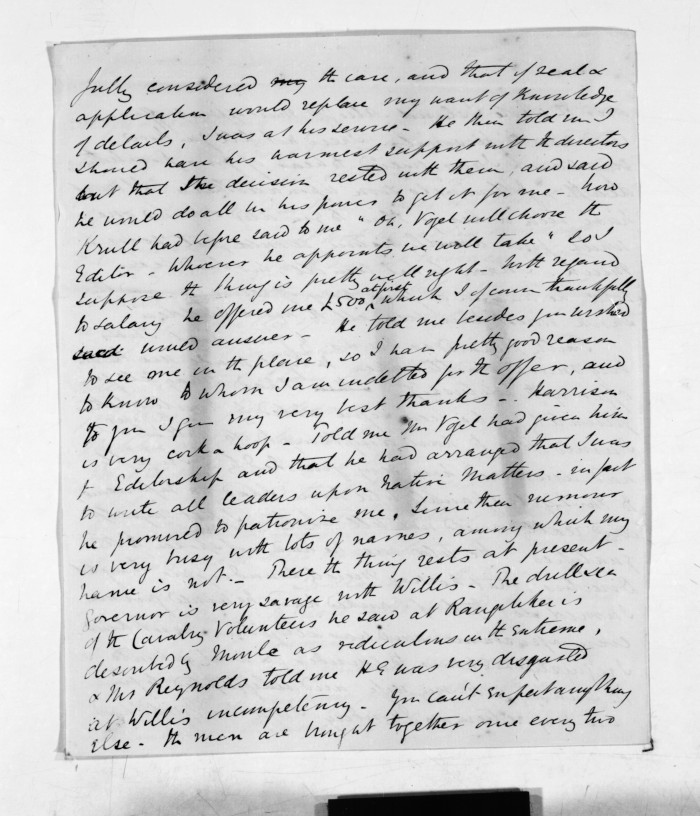 fully considered my the case, and that if zeal &
application would replace my want of knowledge
of details, I was at his service - He then told me I
should have his warmest support with the directors
but that the decision rested with them, and said
he would do all in his power to get it for me - how
Krull had before said to me "Oh, Vogel will choose the
Editor - Whoever he appoints we will take" So I
suppose the thing is pretty well right - With regard
to salary he offered me £500 at first, which I of course thankfully
said would answer - He told me besides you wished
to see me in the place, so I have pretty good reason
to know to whom I am indebted for the offer, and
to you I give my very best thanks - Harrison
is very cock a hoop - Told me Mr Vogel had given him
Editorship and that he had arranged that I was
to write all leaders upon Native Matters - in fact
he promised to patronise me, Since then rumour
is very busy with lots of names, among which my
name is not. - There the thing rests at present -
Governor is very savage with Willis - The drill
of the Cavalry Volunteers he said at Rangitikei is
described by Moule as ridiculous in the extreme,
& Mr Reynolds told me H E was very disgusted
at Willis incompetency - You can't expect anything
else - the men are brought together once every two